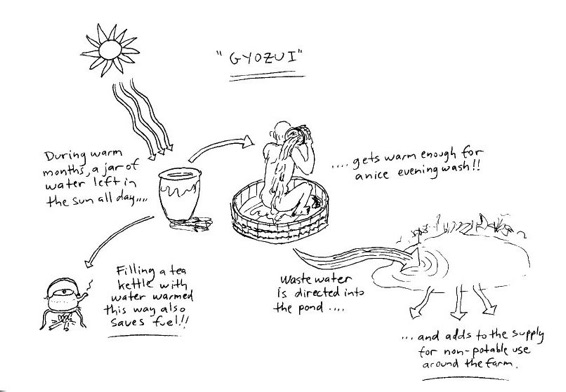 "GYOZUI"
During warm
months, a jar of
water left in
the sun all day....
.... gets warm enough for
a nice evening wash!!
Filling a tea
kettle with
water warmed
this way also
saves fuel!!
Waste water
is directed into
the pond ....
... and adds to the supply
for non-potable use
around the farm.